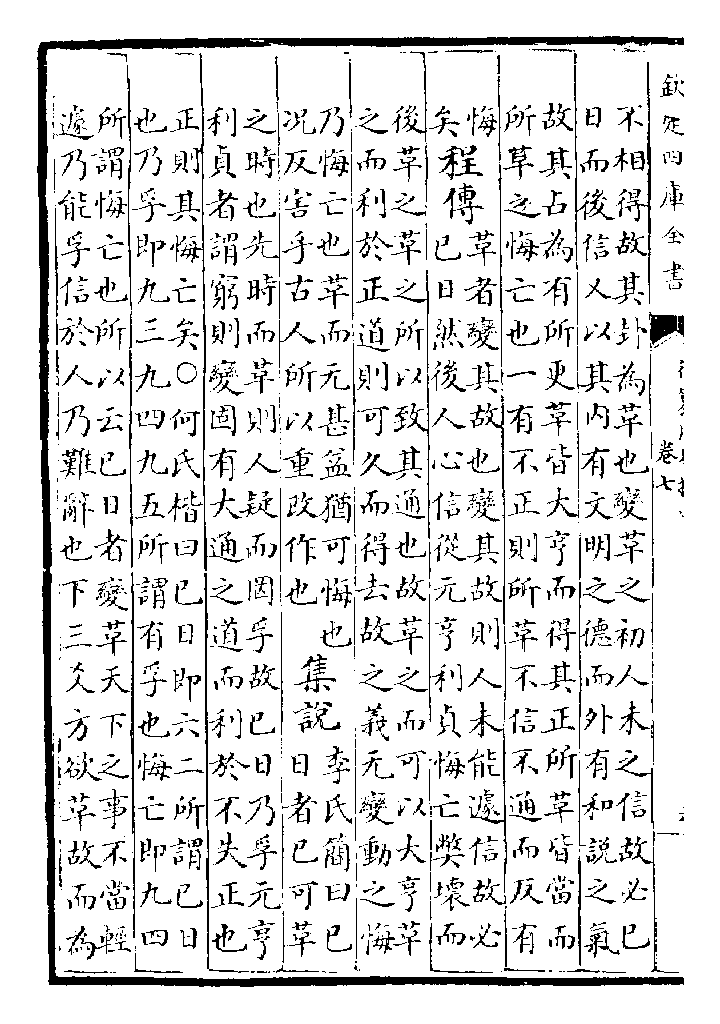 欽定四庫全書
卷七
不相得故其卦為革也變革之初人未之信故必已
日而後信又以其内有文明之德而外有和說之氣
故其占為有所更革皆大亨而得其正所革皆當而
所革之悔亡也一有不正則所革不信不通而反有
悔
矣
程傳
革者變其故也變其故則人未能遽信故必
已日然後人心信從元亨利貞悔亡弊壞而
後革之革之所以致其通也故革之而可以大亨革
之而利於正道則可久而得去故之義无變動之悔
乃悔亡也革而无甚益猶可悔也
况反害乎古人所以重改作也
集說
李氏簡曰已
日者已可革
之時也先時而革則人疑而罔孚故已日乃孚元亨
利貞者謂窮則變固有大通之道而利於不失正也
正則其悔亡矣○何氏楷曰已日即六二所謂已日
也乃孚即九三九四九五所謂有孚也悔亡即九四
所謂悔亡也所以云已日者變革天下之事不當輕
遽乃能孚信於人乃難辭也下三爻方欲革故而為